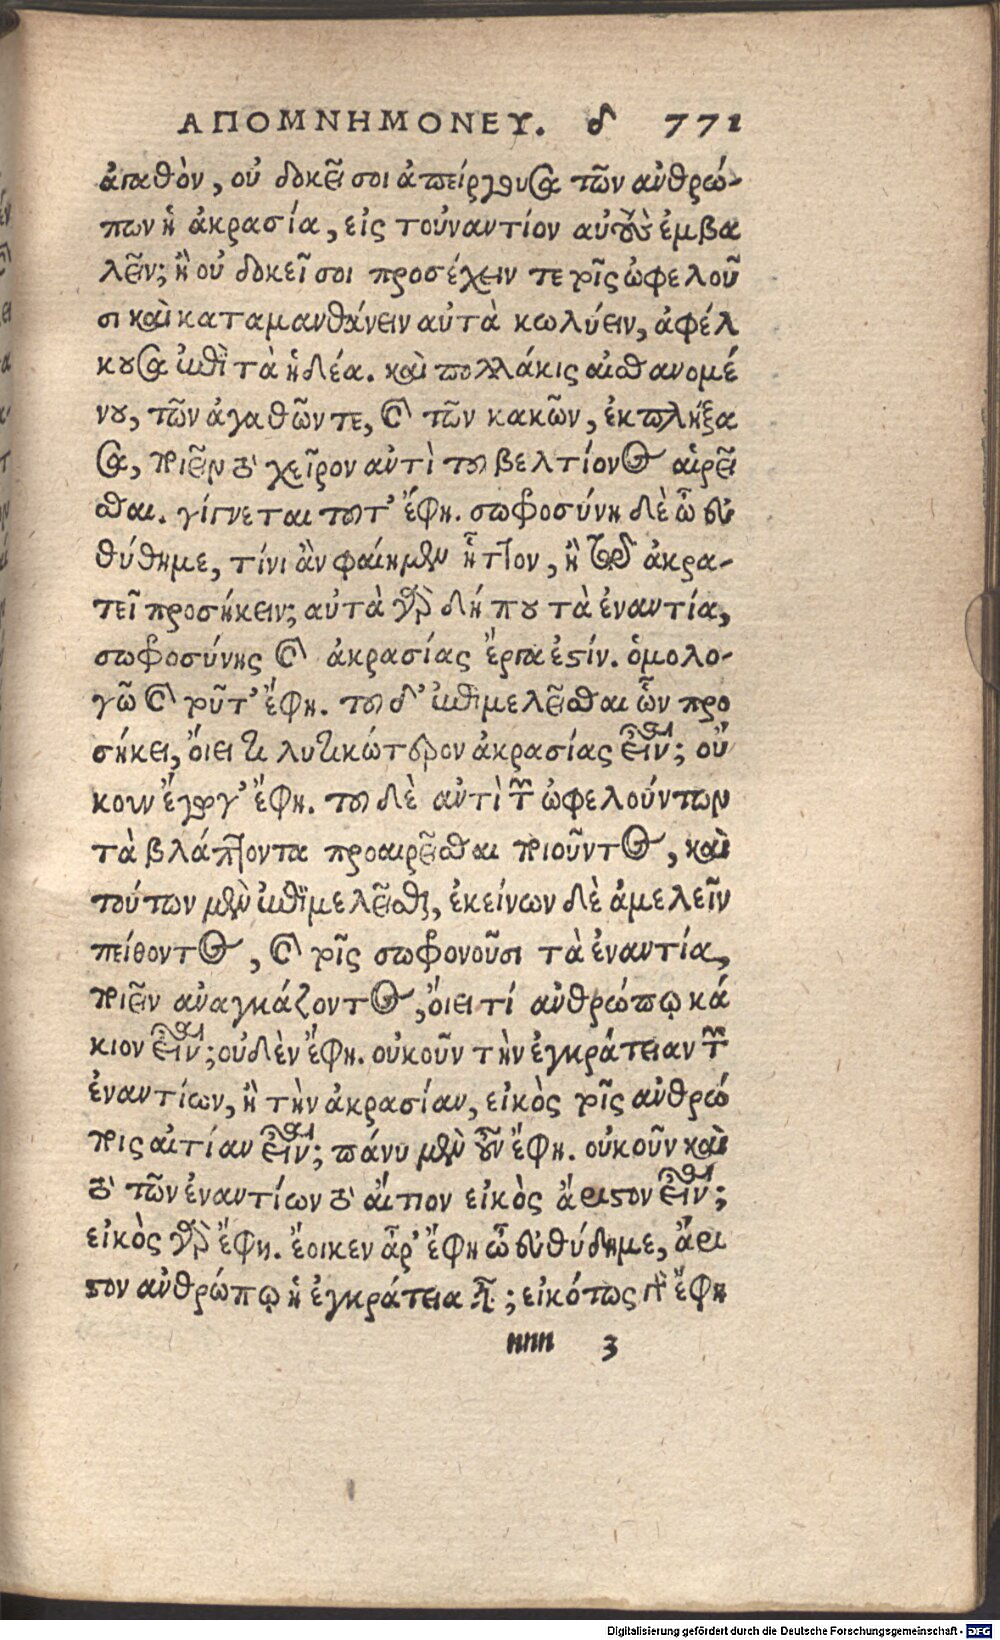 ΑΠΟΜΝΗΜΟΝΕΥ. δ 771
ἀγαθὸν, οὐ δοκεῖ σοι ἀπείργουσα τῶν ἀνθρώ-
πων ἡ ἀκρασία, εἰς τοὐναντίον αὐτοὺς ἐμβα
λεῖν; ἢ οὐ δοκεῖ σοι προσέχειν τε τοῖς ὠφελοῦ
σι καὶ καταμανθάνειν αὐτὰ κωλύειν, ἀφέλ
κουσα ἐπὶ τὰ ἡδέα. καὶ πολλάκις αἰσθανομέ
νου, τῶν ἀγαθῶν τε, καὶ τῶν κακῶν, ἐκπλήξα
σα, ποιεῖν τὸ χεῖρον ἀντὶ τοῦ βελτίονος αἱρεῖ
σθαι. γίγνεται τοῦτ' ἔφη. σωφροσύνη δὲ ὦ εὐ
θύδημε, τίνι ἂν φαίημεν ἧττον, ἢ τῷ ἀκρα-
τεῖ προσήκειν; αὐτὰ γὰρ δήπου τὰ ἐναντία,
σωφροσύνης καὶ ἀκρασίας ἔργα ἐστίν. ὁμολο-
γῶ καὶ τοῦτ' ἔφη. τοῦ δ' ἐπιμελεῖσθαι ὧν προ
σήκει, οἴει τι λυτικώτερον ἀκρασίας εἶναι; οὔ
κουν ἔγωγ' ἔφη. τοῦ δὲ ἀντὶ τῶν ὠφελούντων
τὰ βλάπτοντα προαιρεῖσθαι ποιοῦντος, καὶ
τούτων μὲν ἐπιμελεῖσθαι, ἐκείνων δὲ ἀμελεῖν
πείθοντος, καὶ τοῖς σωφρονοῦσι τὰ ἐναντία,
ποιεῖν ἀναγκάζοντος, οἴει τί ἀνθρώπῳ κά
κιον εἶναι; οὐδὲν ἔφη. οὐκοῦν τὴν ἐγκράτειαν τῶν
ἐναντίων, ἢ τὴν ἀκρασίαν, εἰκὸς τοῖς ἀνθρώ
ποις αἰτίαν εἶναι; πάνυ μὲν οὖν ἔφη. οὐκοῦν καὶ
τὸ τῶν ἐναντίων τὸ αἴτιον εἰκὸς ἄριστον εἶναι;
εἰκὸς γὰρ ἔφη. ἔοικεν ἆρ' ἔφη ὦ εὐθύδημε, ἄρι
στον ἀνθρώπῳ ἡ ἐγκράτεια εἶναι; εἰκότως γὰρ ἔφη
nnn 3
Digitalisierung gefördert durch die Deutsche Forschungsgemeinschaft - DFG